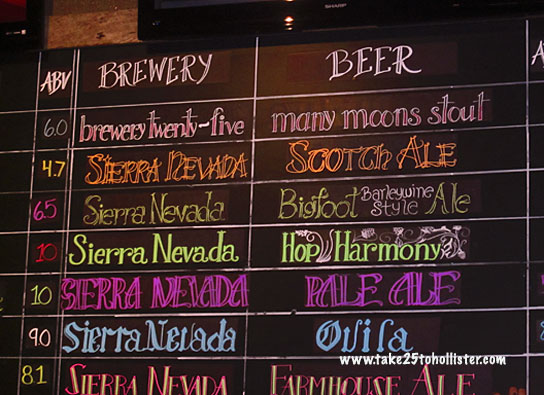 SHARP
ABV BREWERY BEER
6.0 brewery twenty-five many moons stout
4.7 Sierra Nevada Scotch Ale
6.5 Sierra Nevada Bigfoot Barleywine Style Ale
10 Sierra Nevada Hop Harmony
10 SIERRA NEVADA PALE ALE
9.0 Sierra Nevada Ovila
www.take25tohollister.com
8.1 Sierra Nevada Farmhouse Ale